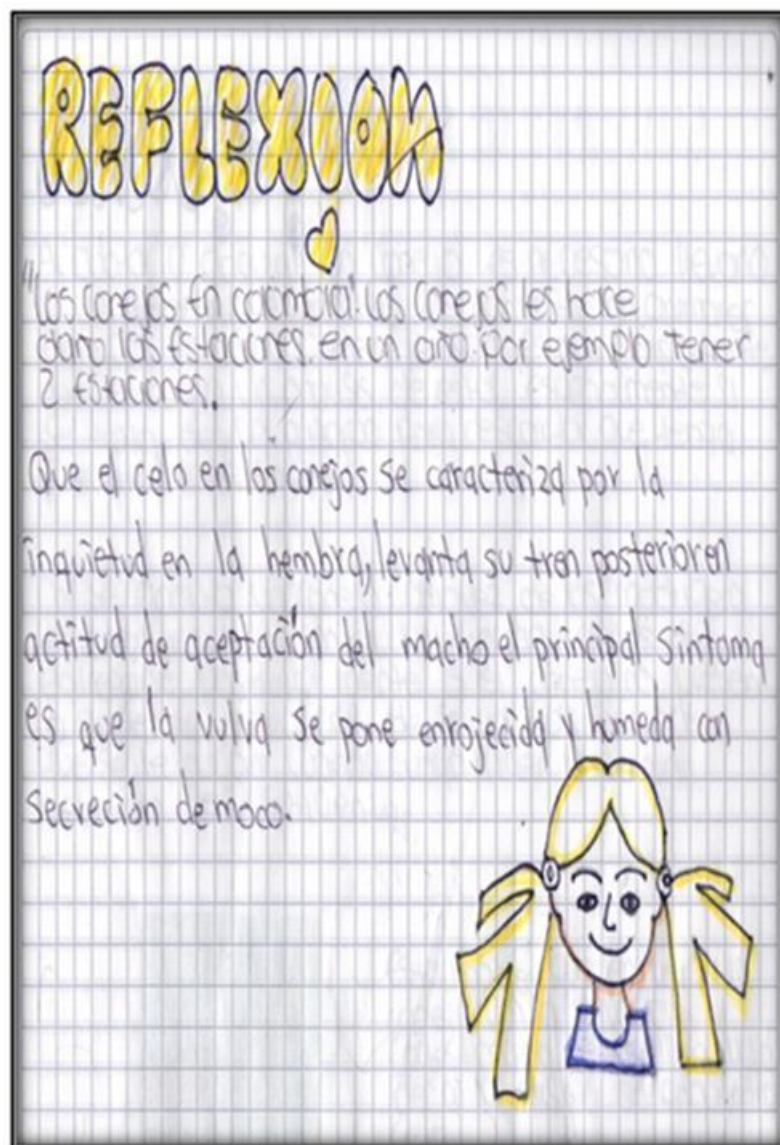 REFLEXION
"Los conejos en colombia". Los conejos les hace
daño las estaciones. en un año. por ejemplo tener
2 estaciones.
Que el celo en los conejos se caracteriza por la
inquietud en la hembra, levanta su tren posterior en
actitud de aceptación del macho el principal sintoma
es que la vulva se pone enrojecida y humeda con
secreción de moco.